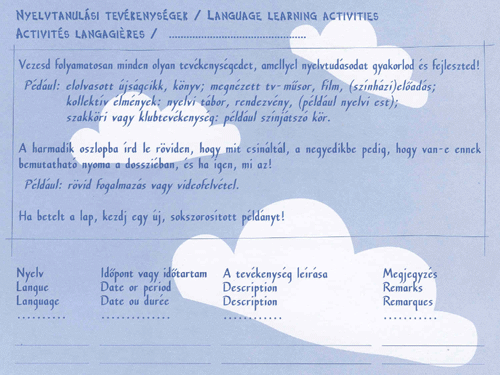 Nyelvtanulási tevékenységek / Language learning activities
Activités langagières / ......................................
Vezesd folyamatosan minden olyan tevékenységedet, amellyel nyelvtudásodat gyakorlod és fejleszted!
Például: elolvasott újságcikk, könyv; megnézett tv-műsor, film, (színházi)előadás;
kollektív élmények: nyelvi tábor, rendezvény, (például nyelvi est);
szakköri vagy klubtevékenység: például színjátszó kör.
A harmadik oszlopba írd le röviden, hogy mit csináltál, a negyedikbe pedig, hogy van-e ennek
bemutatható nyoma a dossziéban, és ha igen, mi az!
Például: rövid fogalmazás vagy videofelvétel.
Ha betelt a lap, kezdj egy új, sokszorosított példányt!
Nyelv Időpont vagy időtartam A tevékenység leírása Megjegyzés
Langue Date or period Description Remarks
Language Date ou durée Description Remarques
.......... ............... ............ ...........